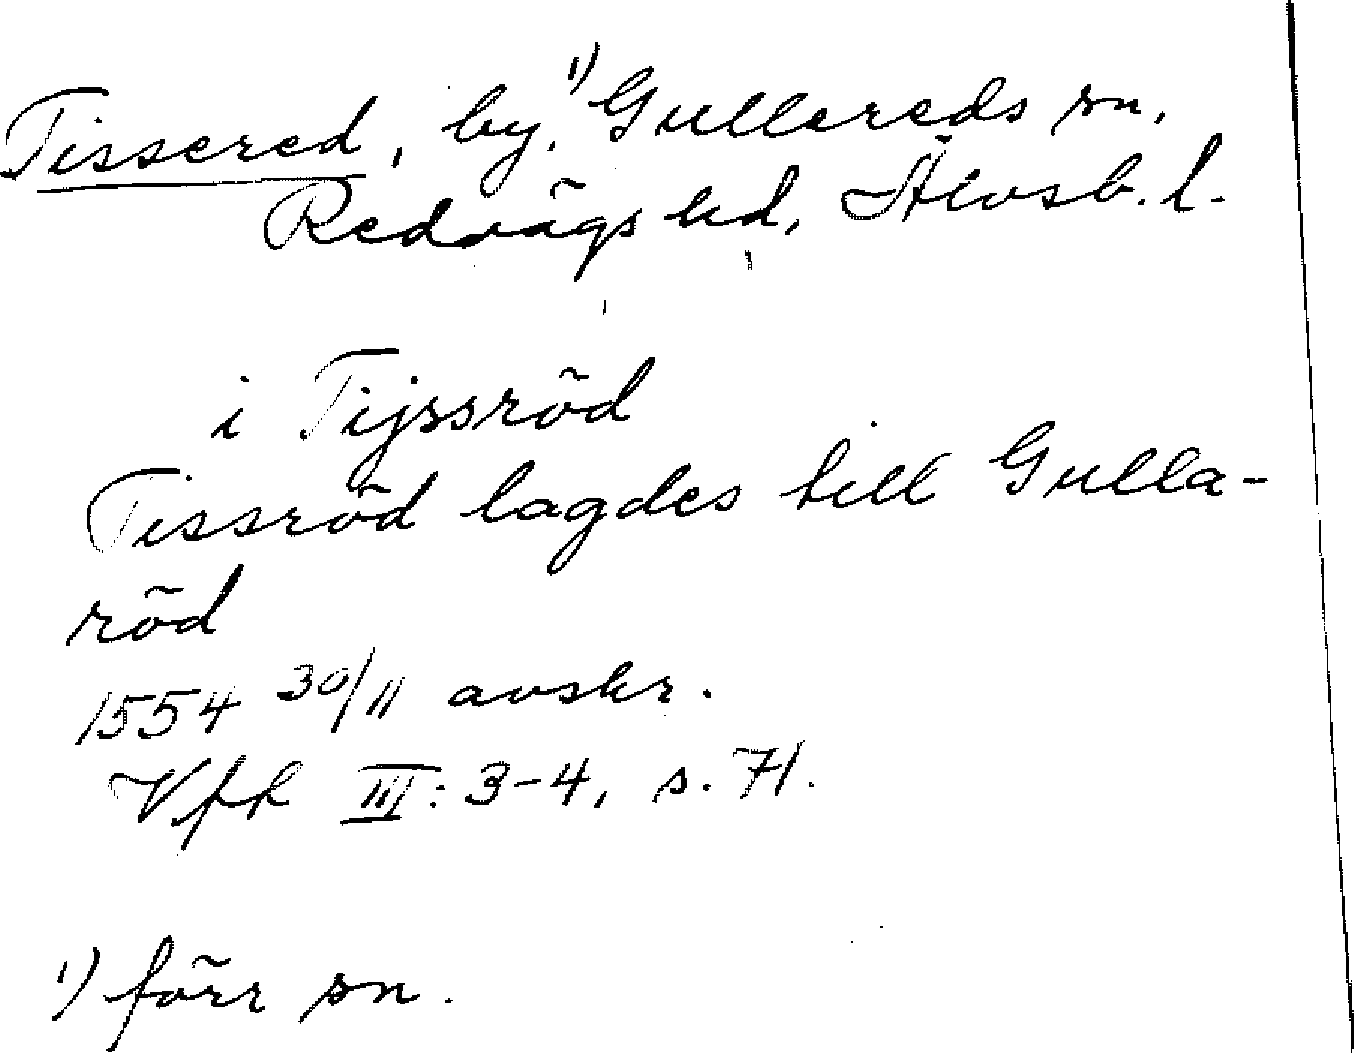 Tissered, by,¹⁾ Gullereds sn,
Redvägs hd, Älvsb. l.
i Tijssröd
Tissröd lagdes till Gulla-
röd
1554 30/11 avskr.
Vfk III: 3-4, s. 71.
¹⁾ förr sn.